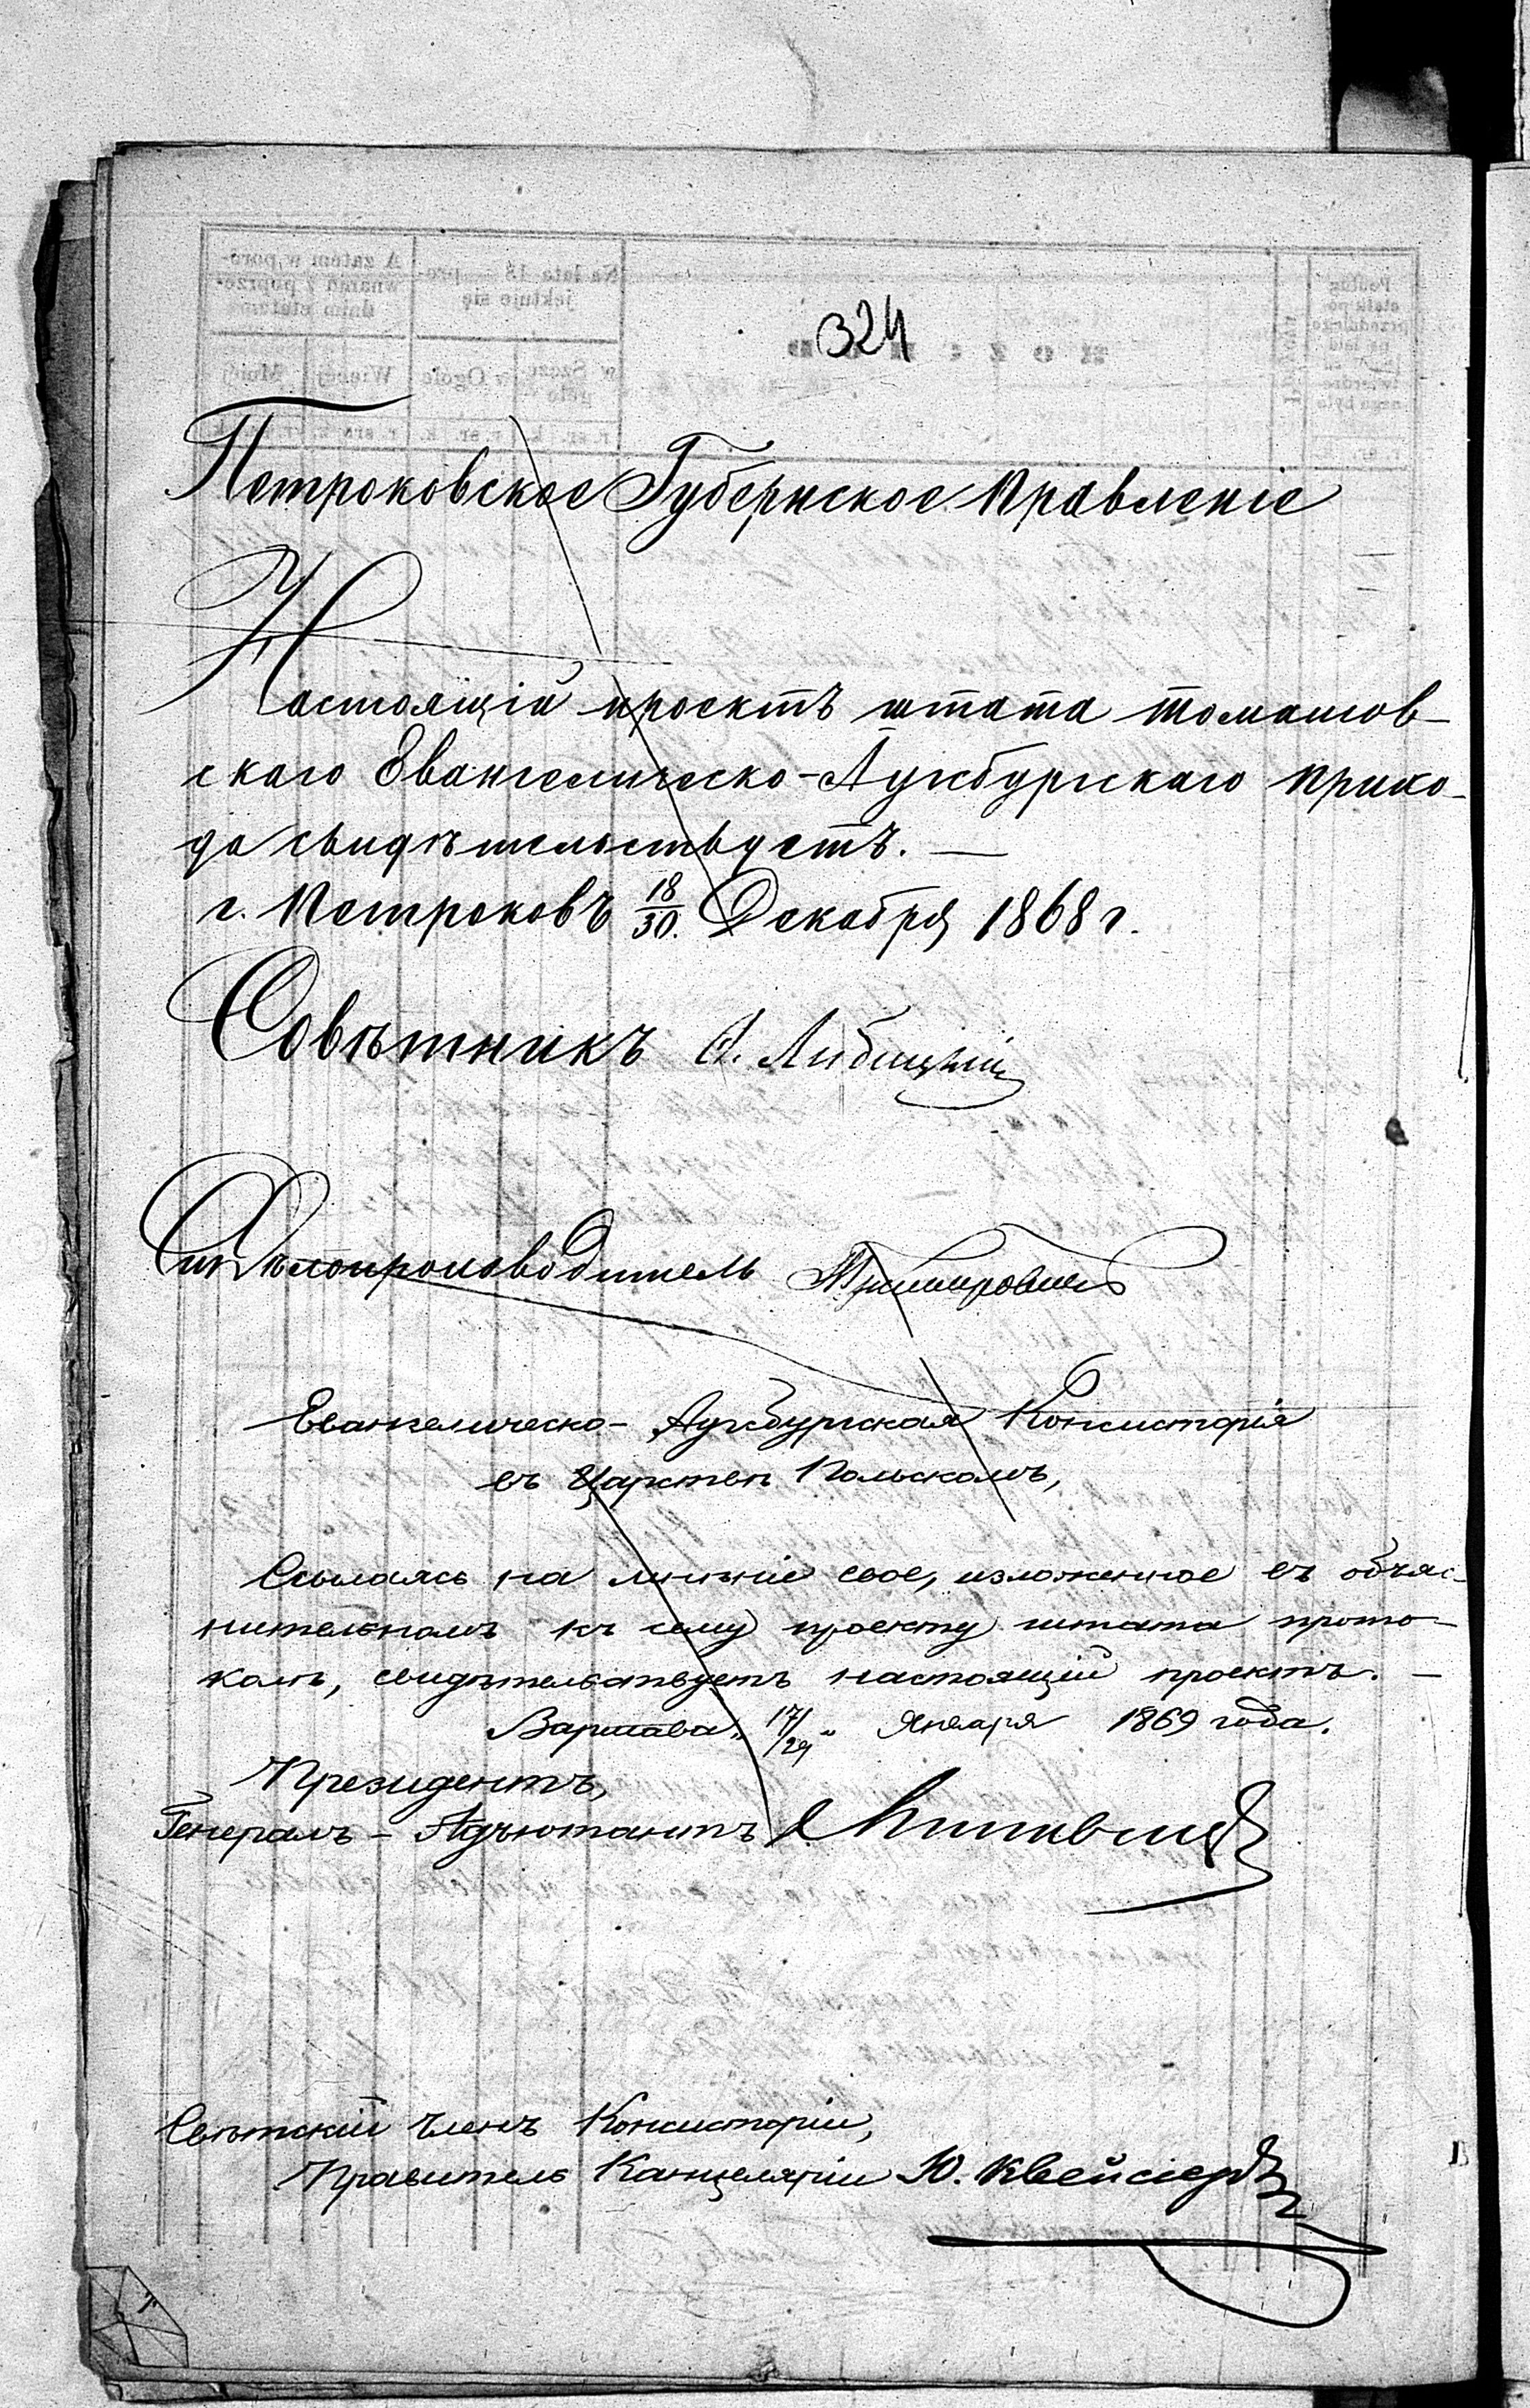 324
Петроковское Губернское Правленіе
Настоящій проектъ штата томашов-
скаго Евангелическо-Аугсбургскаго прихо-
да свидѣтельствуетъ. —
г. Петроковъ 18/30. Декабря 1868 г.
Совѣтникъ А. Либицкій
Дѣлопроизводитель
Евангелическо-Аугсбургская Консисторія
въ Царствѣ Польскомъ,
Ссылаясь на мнѣніе свое, изложенное въ объяс-
нительномъ къ сему проекту штата прото-
колѣ, свидѣтельствуетъ настоящій проектъ. —
Варшава „17/29“ Января 1869 года.
Президентъ,
Генералъ-Адъютантъ
Свѣтскій Членъ Консисторіи,
Правитель Канцеляріи Ю. Квейсіеръ